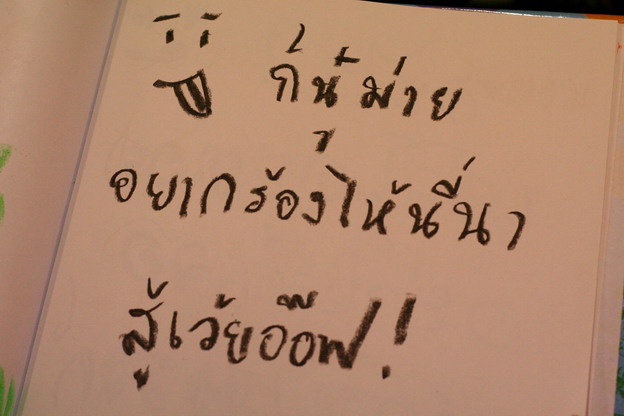 ก่นู๋ม่าย
อยากร้องไห้นี่นา
สู้เว้ยอ๊อฟ!